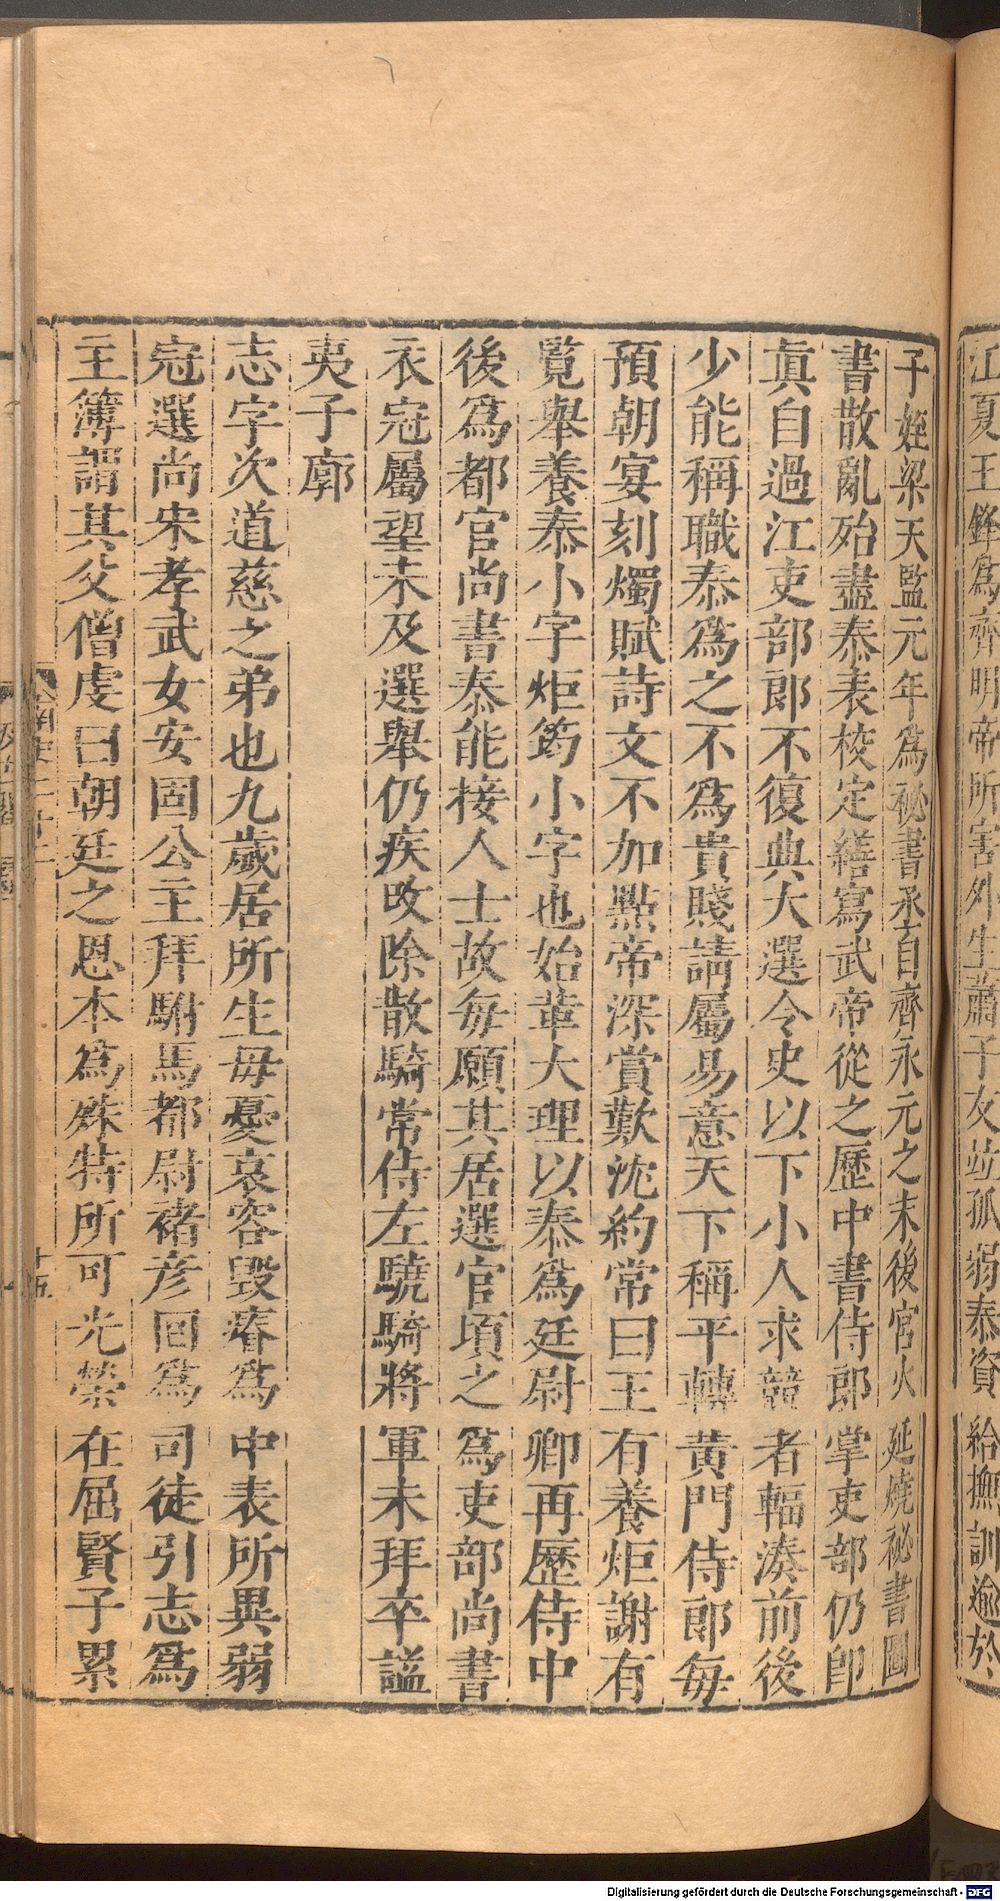 江夏王鋒爲齊明帝所害外生蕭子友並孤弱泰資給撫訓逾於
子姪梁天監元年爲祕書丞自齊永元之末後宮火延燒祕書圖
書散亂殆盡泰表校定繕寫武帝從之歷中書侍郎掌吏部仍卽
眞自過江吏部郎不復典大選令史以下小人求競者輻湊前後
少能稱職泰爲之不爲貴賤請屬易意天下稱平轉黃門侍郎每
預朝宴刻燭賦詩文不加點帝深賞歎沈約常曰王有養炬謝有
覽舉養泰小字炬筠小字也始革大理以泰爲廷尉卿再歷侍中
後爲都官尚書泰能接人士故每願其居選官頃之爲吏部尚書
衣冠屬望未及選舉仍疾攺除散騎常侍左驍騎將軍未拜卒謚
夷子廓
志字次道慈之弟也九歲居所生母憂哀容毀瘠爲中表所異弱
冠選尚宋孝武女安固公主拜駙馬都尉褚彦回爲司徒引志爲
主簿謂其父僧虔曰朝廷之恩本爲殊特所可光榮在屈賢子累
十五
Digitalisierung gefördert durch die Deutsche Forschungsgemeinschaft - DFG